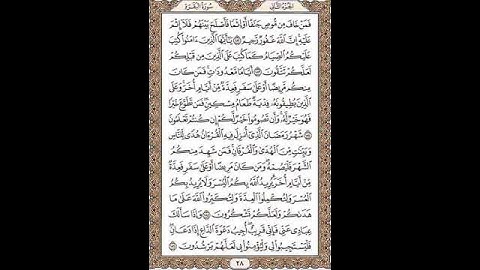 الجزء الثاني سورة البقرة
فَمَنْ خَافَ مِن مُّوصٍ جَنَفًا أَوْ إِثْمًا فَأَصْلَحَ بَيْنَهُمْ فَلَآ إِثْمَ
عَلَيْهِ إِنَّ ٱللَّهَ غَفُورٌ رَّحِيمٌ يَٰٓأَيُّهَا ٱلَّذِينَ ءَامَنُوا۟ كُتِبَ
عَلَيْكُمُ ٱلصِّيَامُ كَمَا كُتِبَ عَلَى ٱلَّذِينَ مِن قَبْلِكُمْ
لَعَلَّكُمْ تَتَّقُونَ أَيَّامًا مَّعْدُودَٰتٍ فَمَن كَانَ
مِنكُم مَّرِيضًا أَوْ عَلَىٰ سَفَرٍ فَعِدَّةٌ مِّنْ أَيَّامٍ أُخَرَ وَعَلَى
ٱلَّذِينَ يُطِيقُونَهُۥ فِدْيَةٌ طَعَامُ مِسْكِينٍ فَمَن تَطَوَّعَ خَيْرًا
فَهُوَ خَيْرٌ لَّهُۥ وَأَن تَصُومُوا۟ خَيْرٌ لَّكُمْ إِن كُنتُمْ تَعْلَمُونَ
شَهْرُ رَمَضَانَ ٱلَّذِىٓ أُنزِلَ فِيهِ ٱلْقُرْءَانُ هُدًى لِّلنَّاسِ
وَبَيِّنَٰتٍ مِّنَ ٱلْهُدَىٰ وَٱلْفُرْقَانِ فَمَن شَهِدَ مِنكُمُ
ٱلشَّهْرَ فَلْيَصُمْهُ وَمَن كَانَ مَرِيضًا أَوْ عَلَىٰ سَفَرٍ فَعِدَّةٌ
مِّنْ أَيَّامٍ أُخَرَ يُرِيدُ ٱللَّهُ بِكُمُ ٱلْيُسْرَ وَلَا يُرِيدُ بِكُمُ
ٱلْعُسْرَ وَلِتُكْمِلُوا۟ ٱلْعِدَّةَ وَلِتُكَبِّرُوا۟ ٱللَّهَ عَلَىٰ مَا
هَدَىٰكُمْ وَلَعَلَّكُمْ تَشْكُرُونَ وَإِذَا سَأَلَكَ
عِبَادِى عَنِّى فَإِنِّى قَرِيبٌ أُجِيبُ دَعْوَةَ ٱلدَّاعِ إِذَا دَعَانِ
فَلْيَسْتَجِيبُوا۟ لِى وَلْيُؤْمِنُوا۟ بِى لَعَلَّهُمْ يَرْشُدُونَ
٢٨